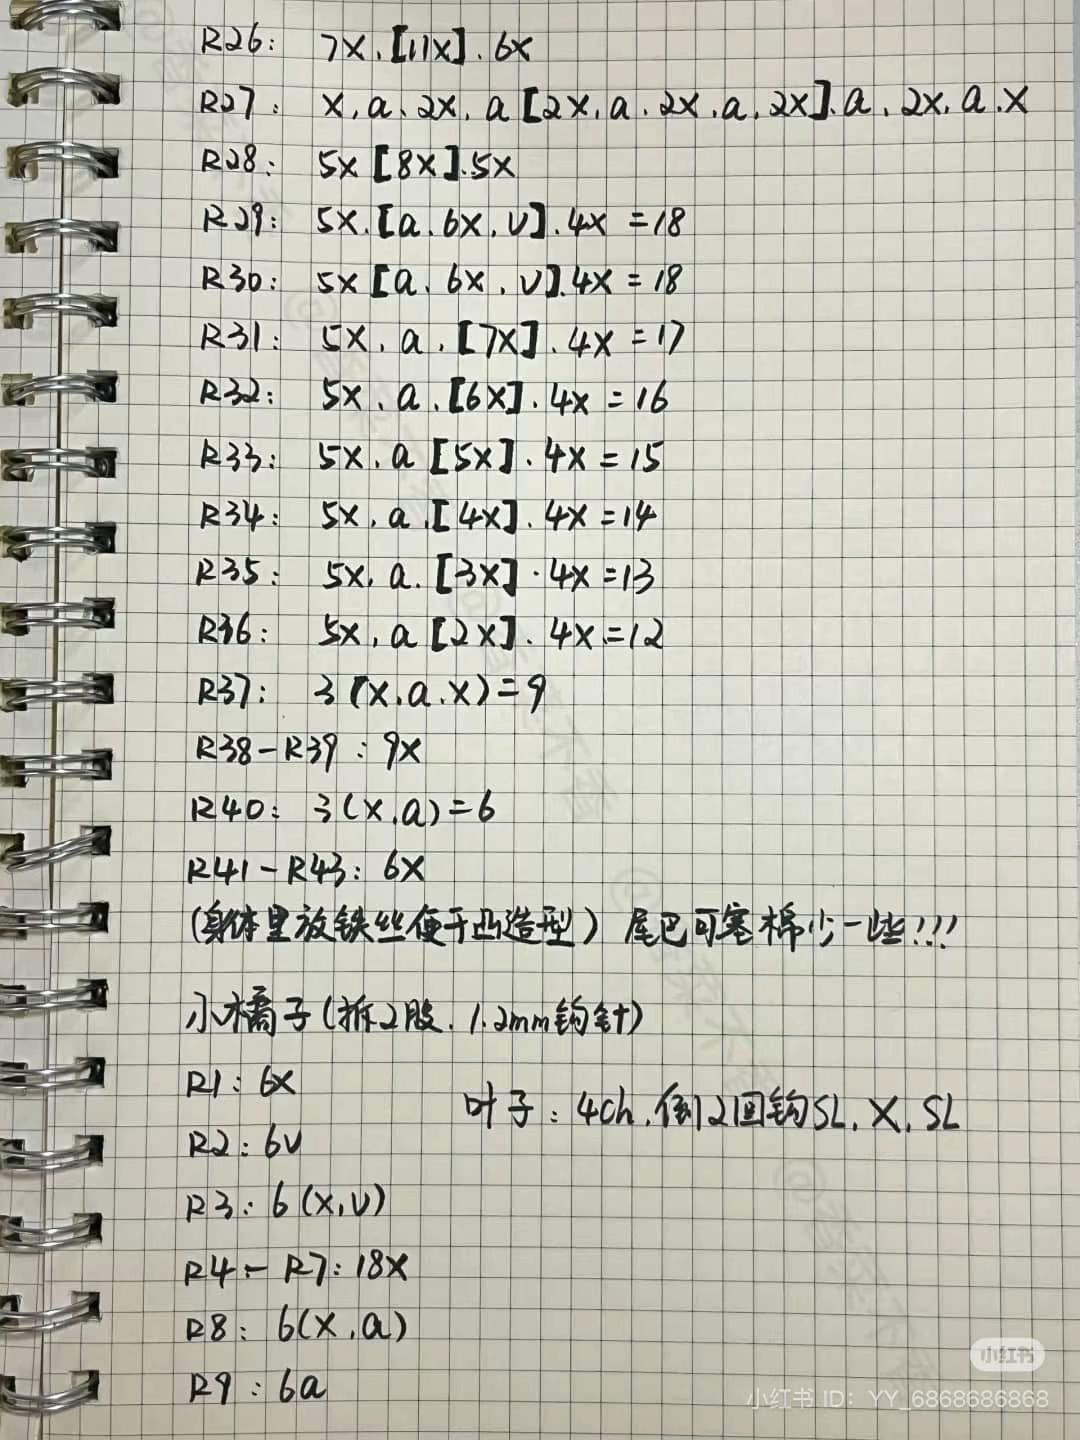 R26: 7X.[11X].6X
R27: X.a.2X.a[2X.a.2X.a.2X].a.2X.a.X
R28: 5X[8X].5X
R29: 5X.[a.6X.V].4X=18
R30: 5X[a.6X.V].4X=18
R31: 5X.a.[7X].4X=17
R32: 5X.a.[6X].4X=16
R33: 5X.a[5X].4X=15
R34: 5X.a.[4X].4X=14
R35: 5X.a.[3X].4X=13
R36: 5X.a[2X].4X=12
R37: 3(X.a.X)=9
R38-R39:9X
R40: 3(X.a)=6
R41-R43: 6X
(身体里放铁丝便于凹造型) 尾巴可塞棉少一些!!!
小橘子(拆2股.1.2mm钩针)
R1:6X
叶子:4ch.倒2回钩SL.X.SL
R2:6V
R3:6(X,V)
R4-R7:18X
R8: 6(X.a)
R9:6a
小红书
小红书 ID: YY_6868686868